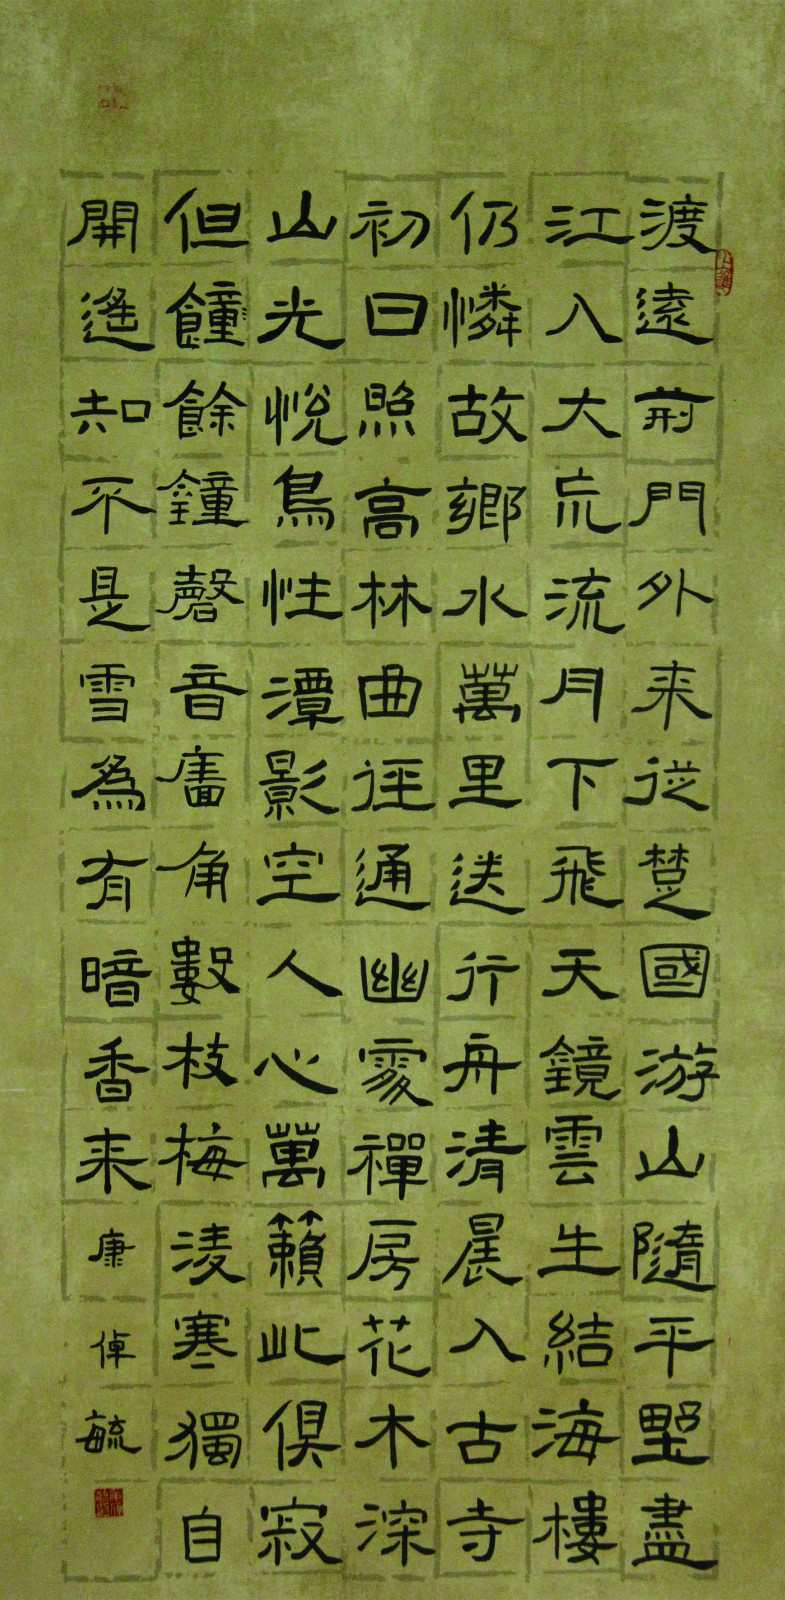 渡遠荊門外来從楚國游山隨平野盡
江入大荒流月下飛天鏡雲生結海樓
仍憐故鄉水萬里送行舟清晨入古寺
初日照高林曲徑通幽處禪房花木深
山光悅鳥性潭影空人心萬籟此俱寂
但餘鐘磬音墻角數枝梅凌寒獨自
開遙知不是雪為有暗香来 康倬毓